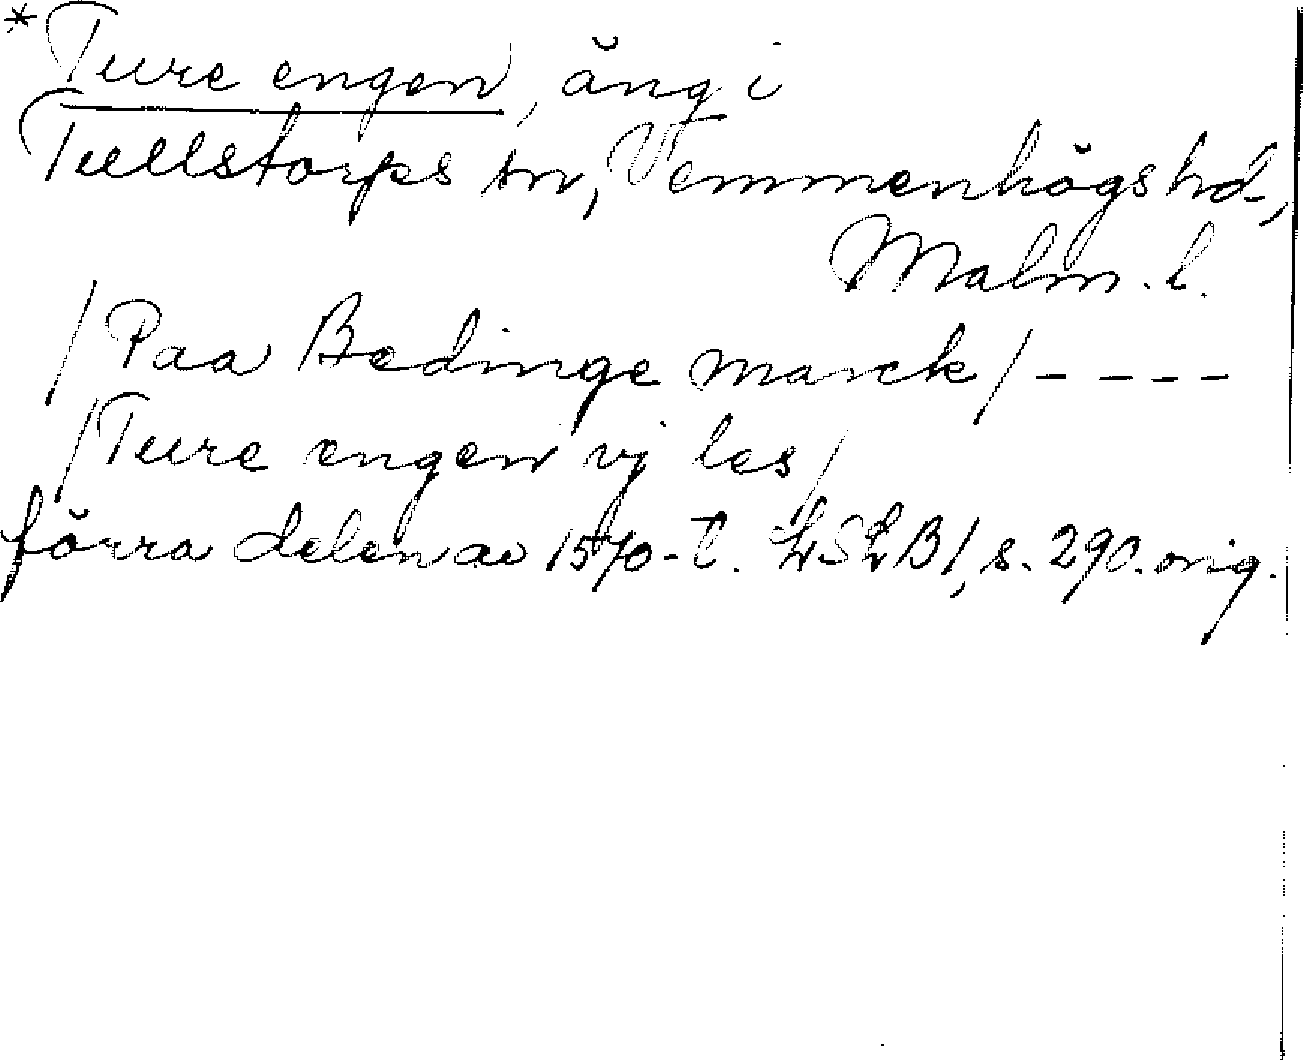 *Ture engen, äng i
Tullstorps sn, Vemmenhögs hd.,
Malm. l.
/Paa Bedinge marck/----
/Ture engen vj les/
förra delen av 1570-t. LSLB1, s. 290. orig.